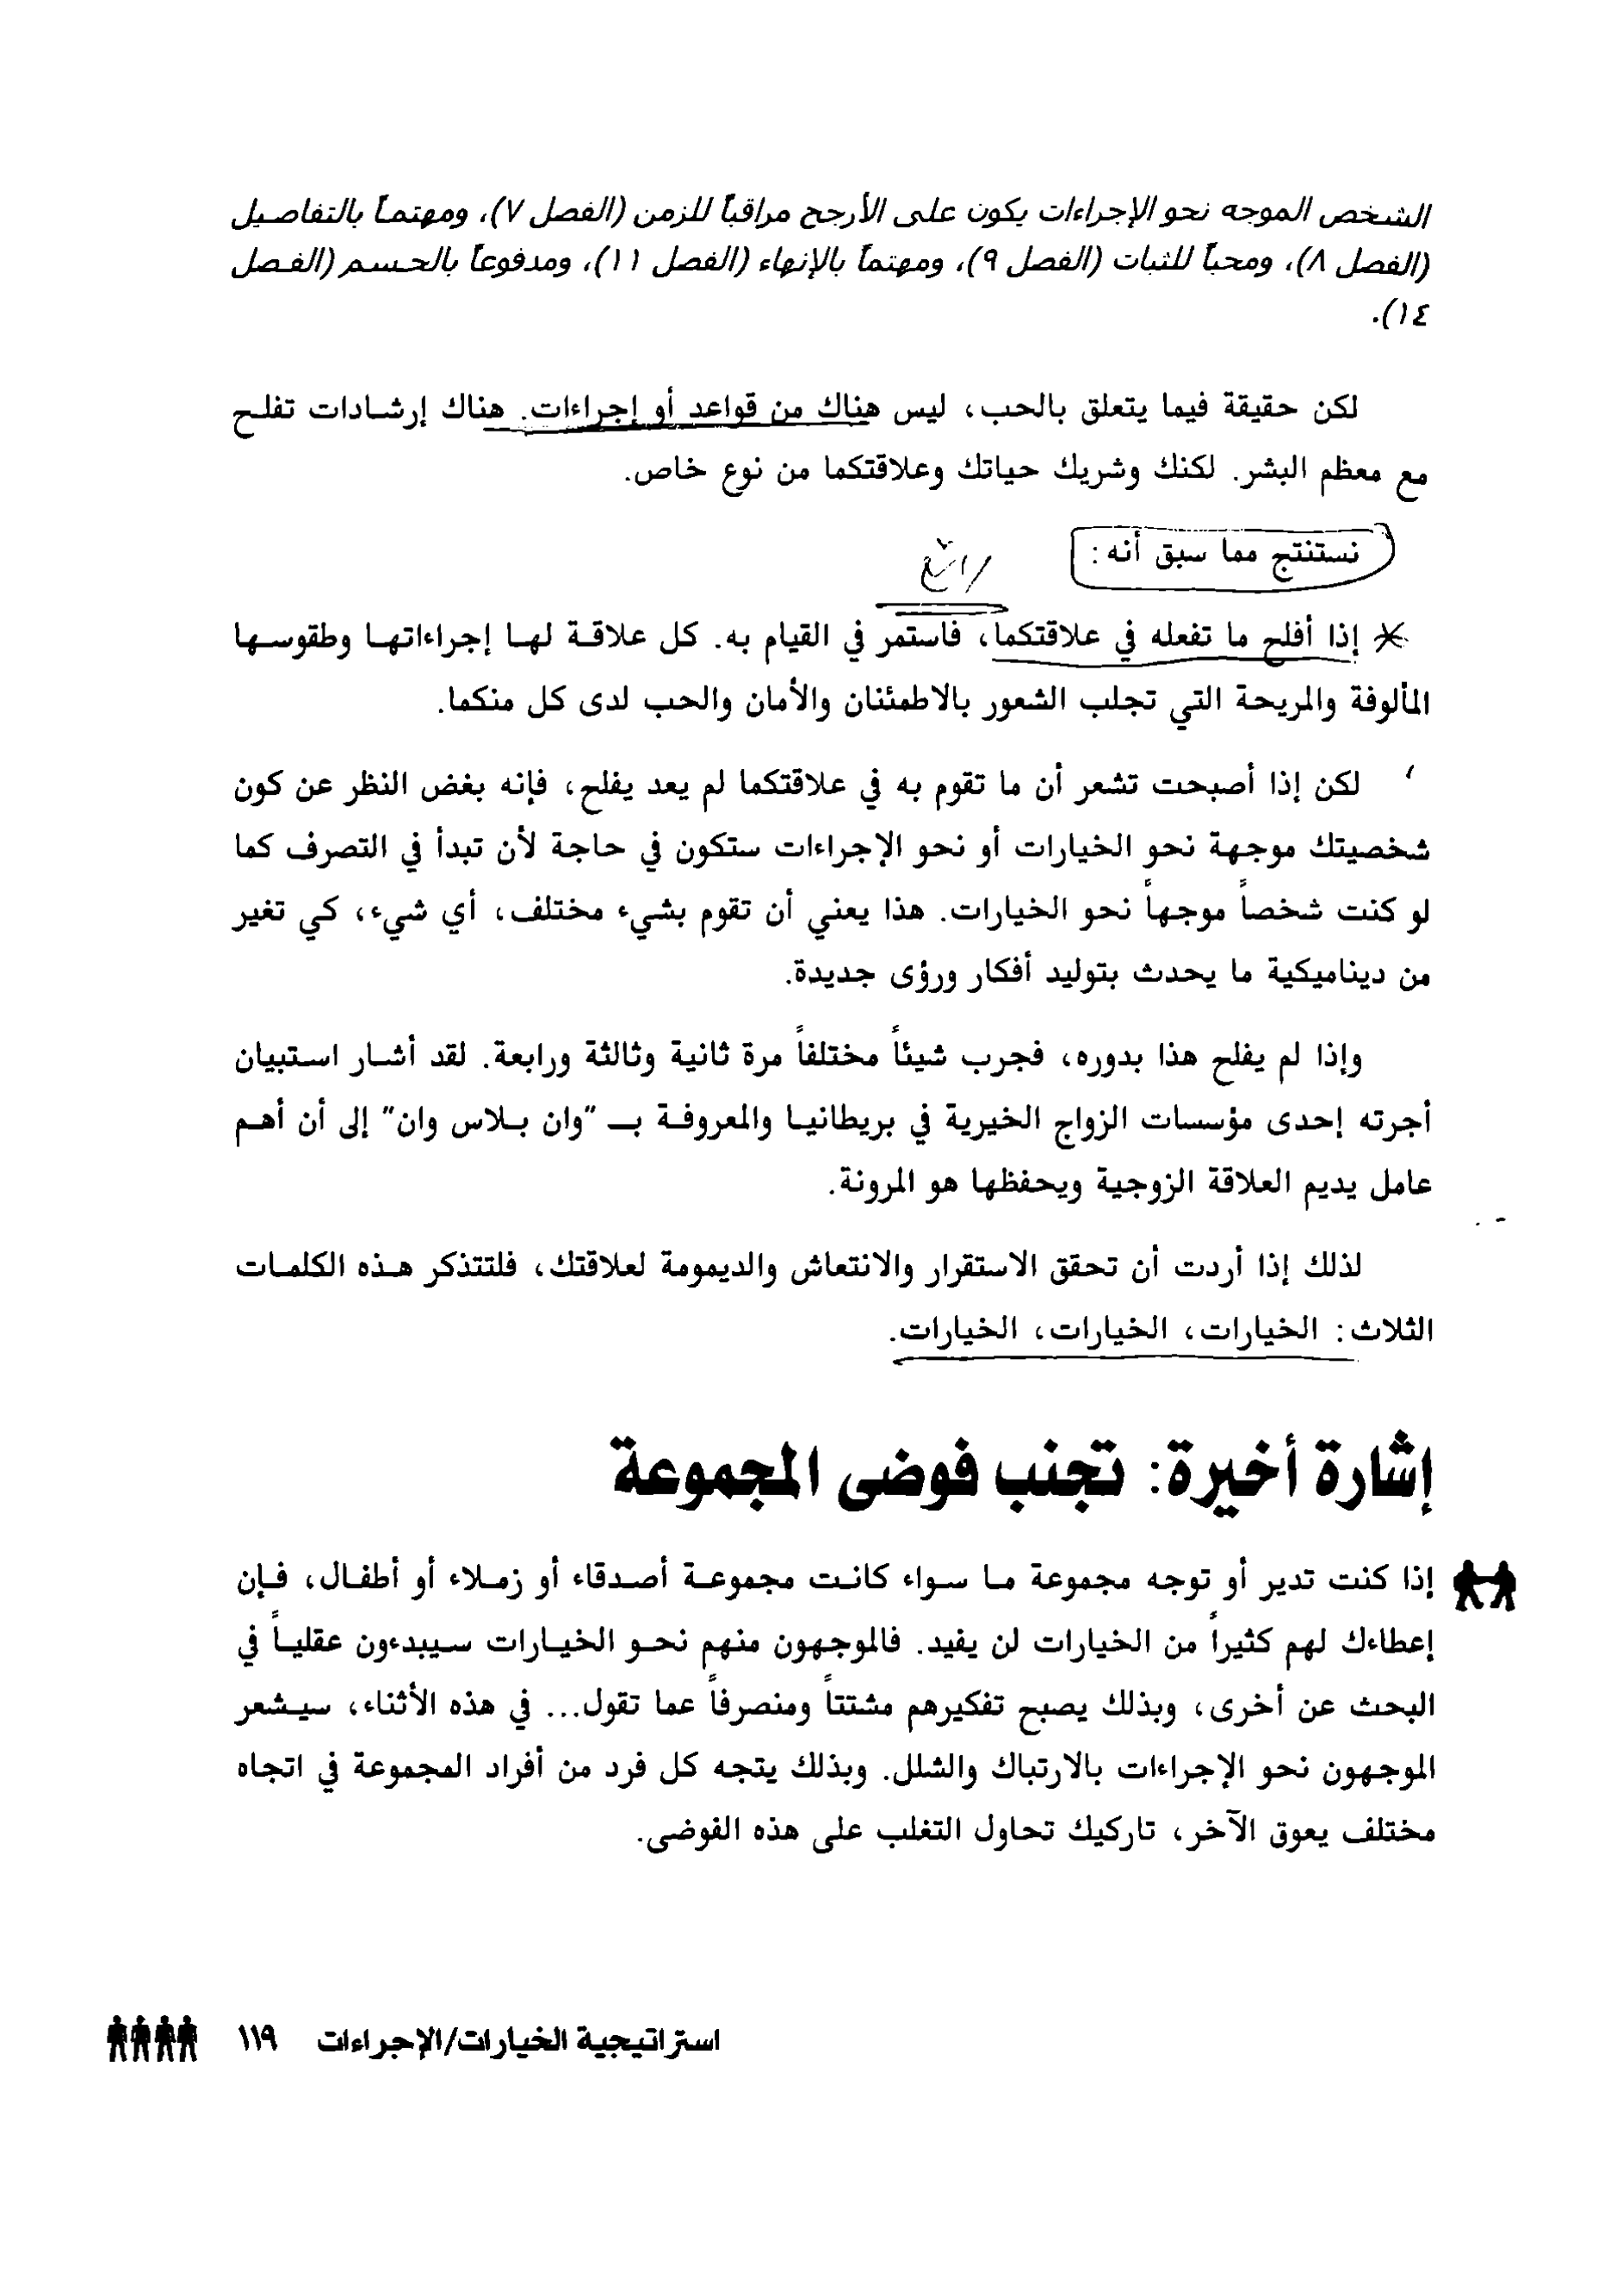 الشخص الموجه نحو الإجراءات يكون على الأرجح مراقباً للزمن (الفصل ٧)، ومهتماً بالتفاصيل
(الفصل ٨)، ومحباً للثبات (الفصل ٩)، ومهتماً بالإنهاء (الفصل ١١)، ومدفوعاً بالحسم (الفصل
١٤).
لكن حقيقة فيما يتعلق بالحب، ليس هناك من قواعد أو إجراءات. هناك إرشادات تفلح
مع معظم البشر. لكنك وشريك حياتك وعلاقتكما من نوع خاص.
نستنتج مما سبق أنه:
رائع
* إذا أفلح ما تفعله في علاقتكما، فاستمر في القيام به. كل علاقة لها إجراءاتها وطقوسها
المألوفة والمريحة التي تجلب الشعور بالاطمئنان والأمان والحب لدى كل منكما.
لكن إذا أصبحت تشعر أن ما تقوم به في علاقتكما لم يعد يفلح، فإنه بغض النظر عن كون
شخصيتك موجهة نحو الخيارات أو نحو الإجراءات ستكون في حاجة لأن تبدأ في التصرف كما
لو كنت شخصاً موجهاً نحو الخيارات. هذا يعني أن تقوم بشيء مختلف، أي شيء، كي تغير
من ديناميكية ما يحدث بتوليد أفكار ورؤى جديدة.
وإذا لم يفلح هذا بدوره، فجرب شيئاً مختلفاً مرة ثانية وثالثة ورابعة. لقد أشار استبيان
أجرته إحدى مؤسسات الزواج الخيرية في بريطانيا والمعروفة بـ "وان بلاس وان" إلى أن أهم
عامل يديم العلاقة الزوجية ويحفظها هو المرونة.
لذلك إذا أردت أن تحقق الاستقرار والانتعاش والديمومة لعلاقتك، فلتتذكر هذه الكلمات
الثلاث: الخيارات، الخيارات، الخيارات.
إشارة أخيرة: تجنب فوضى المجموعة
إذا كنت تدير أو توجه مجموعة ما سواء كانت مجموعة أصدقاء أو زملاء أو أطفال، فإن
إعطاءك لهم كثيراً من الخيارات لن يفيد. فالموجهون منهم نحو الخيارات سيبدءون عقلياً في
البحث عن أخرى، وبذلك يصبح تفكيرهم مشتتاً ومنصرفاً عما تقول... في هذه الأثناء، سيشعر
الموجهون نحو الإجراءات بالارتباك والشلل. وبذلك يتجه كل فرد من أفراد المجموعة في اتجاه
مختلف يعوق الآخر، تاركيك تحاول التغلب على هذه الفوضى.
استراتيجية الخيارات/الإجراءات ١١٩